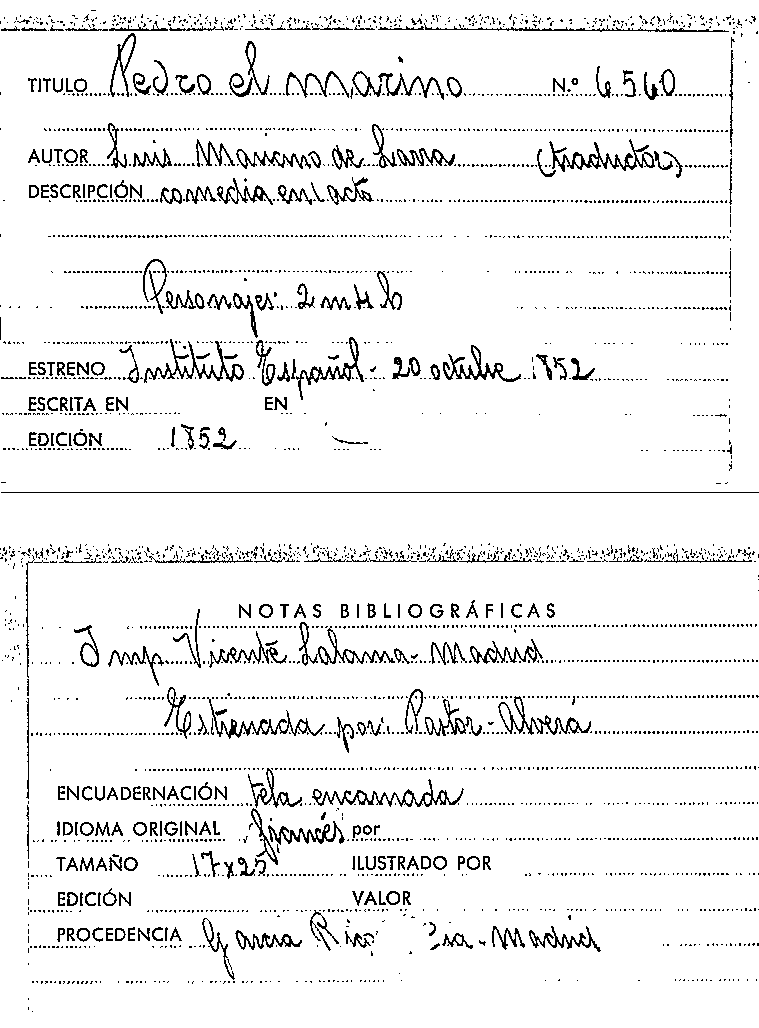 TITULO Pedro el marino N.º 6560
AUTOR Luis Mariano de Larra (traductor)
DESCRIPCIÓN comedia en 1 acto
Personajes: 2 m 4 h
ESTRENO Instituto Español - 20 octubre 1852
ESCRITA EN EN
EDICIÓN 1852
NOTAS BIBLIOGRÁFICAS
Imp Vicente Lalama - Madrid
Estrenada por: Pastor - Alverá
ENCUADERNACIÓN tela encarnada
IDIOMA ORIGINAL francés por
TAMAÑO 17x25 ILUSTRADO POR
EDICIÓN VALOR
PROCEDENCIA García Rico - Madrid